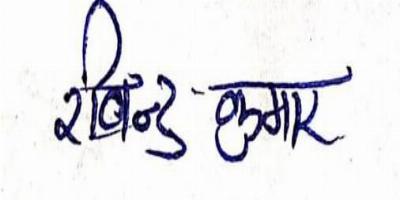 रविन्द्र कुमार